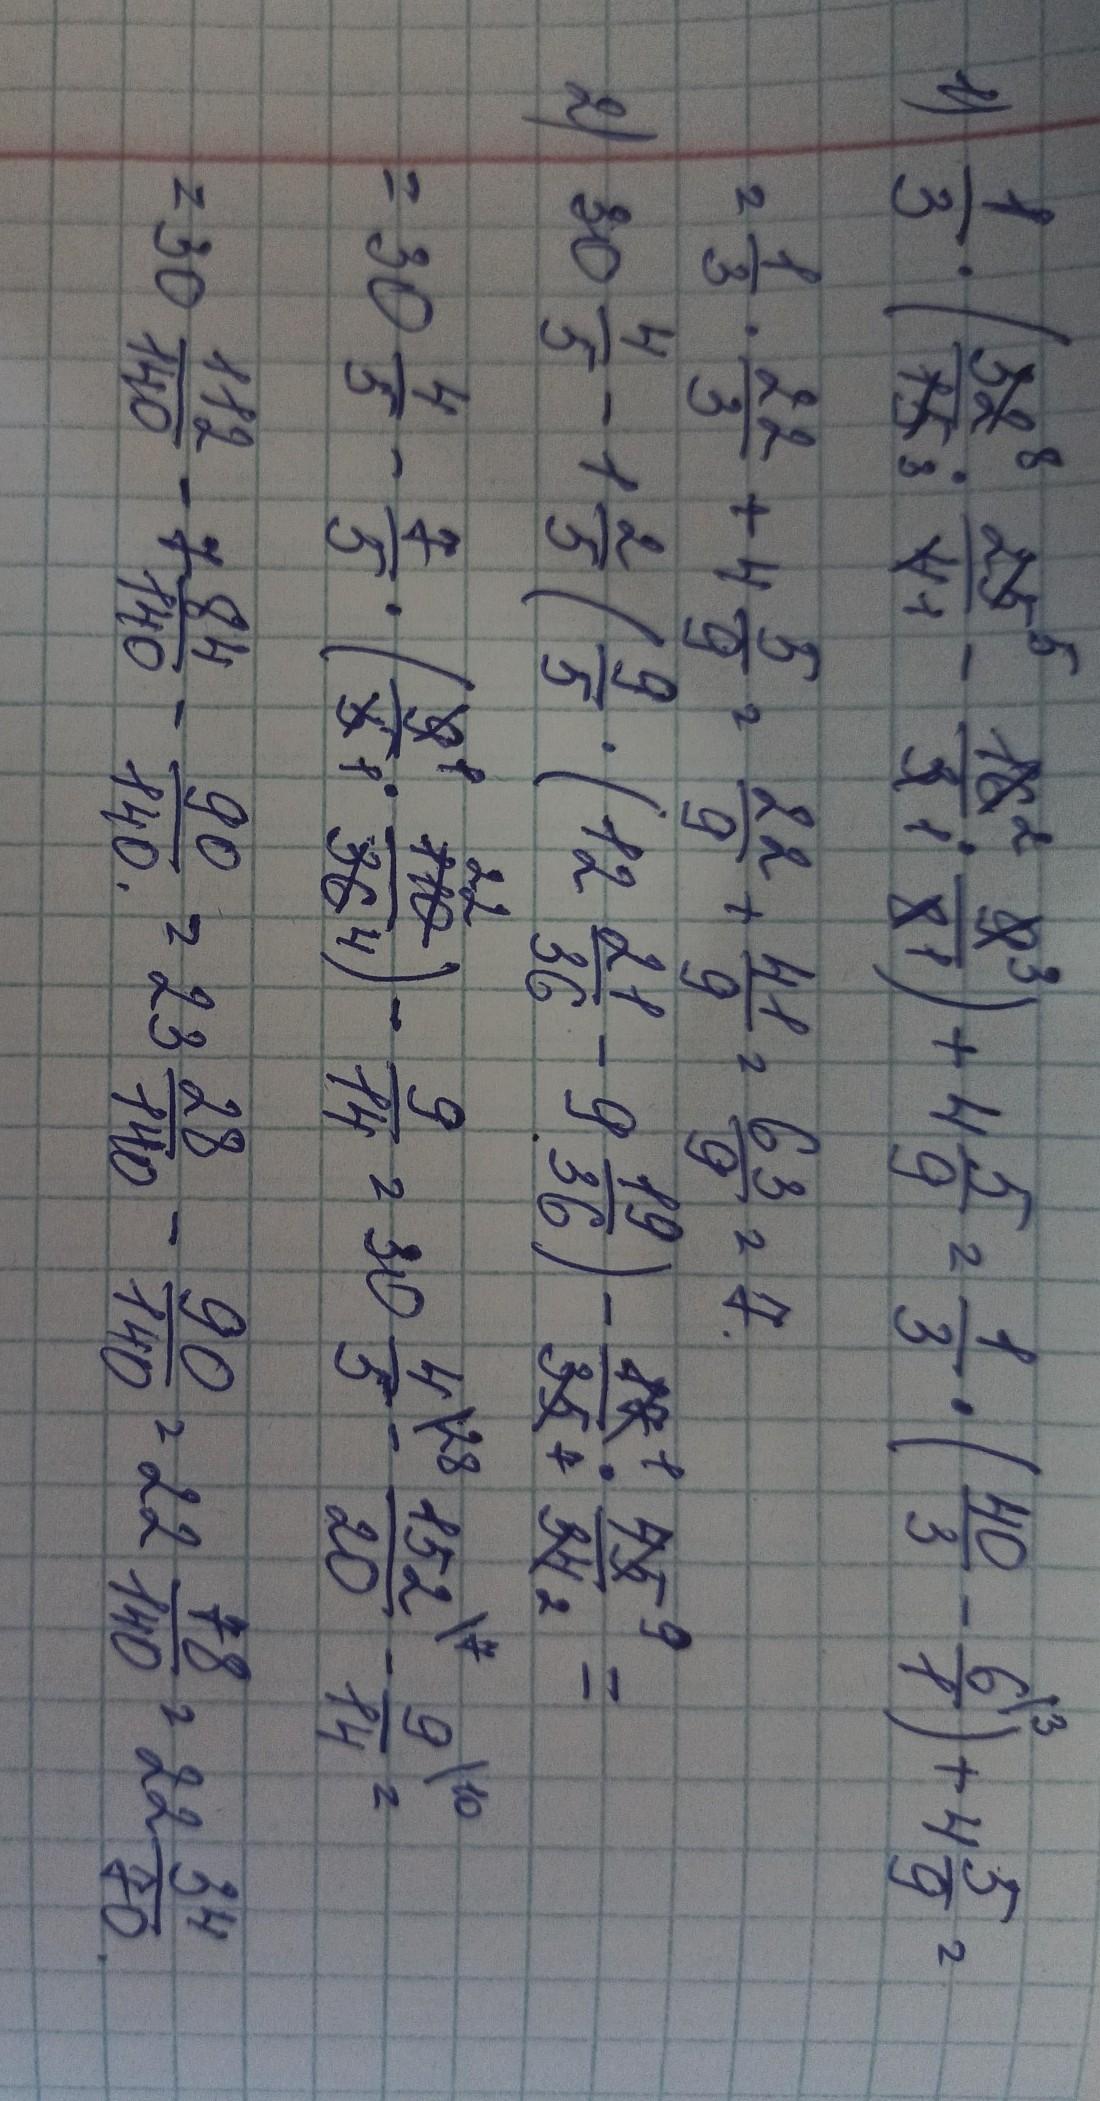 1) 1/3 · (32/15 · 25/4 - 16/3 · 9/8) + 4 5/9 = 1/3 · (40/3 - 6/1\3) + 4 5/9 =
= 1/3 · 22/3 + 4 5/9 = 22/9 + 41/9 = 63/9 = 7.
2) 30 4/5 - 1 2/5 (9/5 · (12 21/36 - 9 19/36) - 18/35 · 45/34 =
= 30 4/5 - 7/5 · (9/5 · 110/36) - 9/14 = 30 4/5\28 - 152/20\7 - 9/14\10 =
= 30 112/140 - 7 84/140 - 90/140. = 23 28/140 - 90/140 = 22 78/140 = 22 34/70.